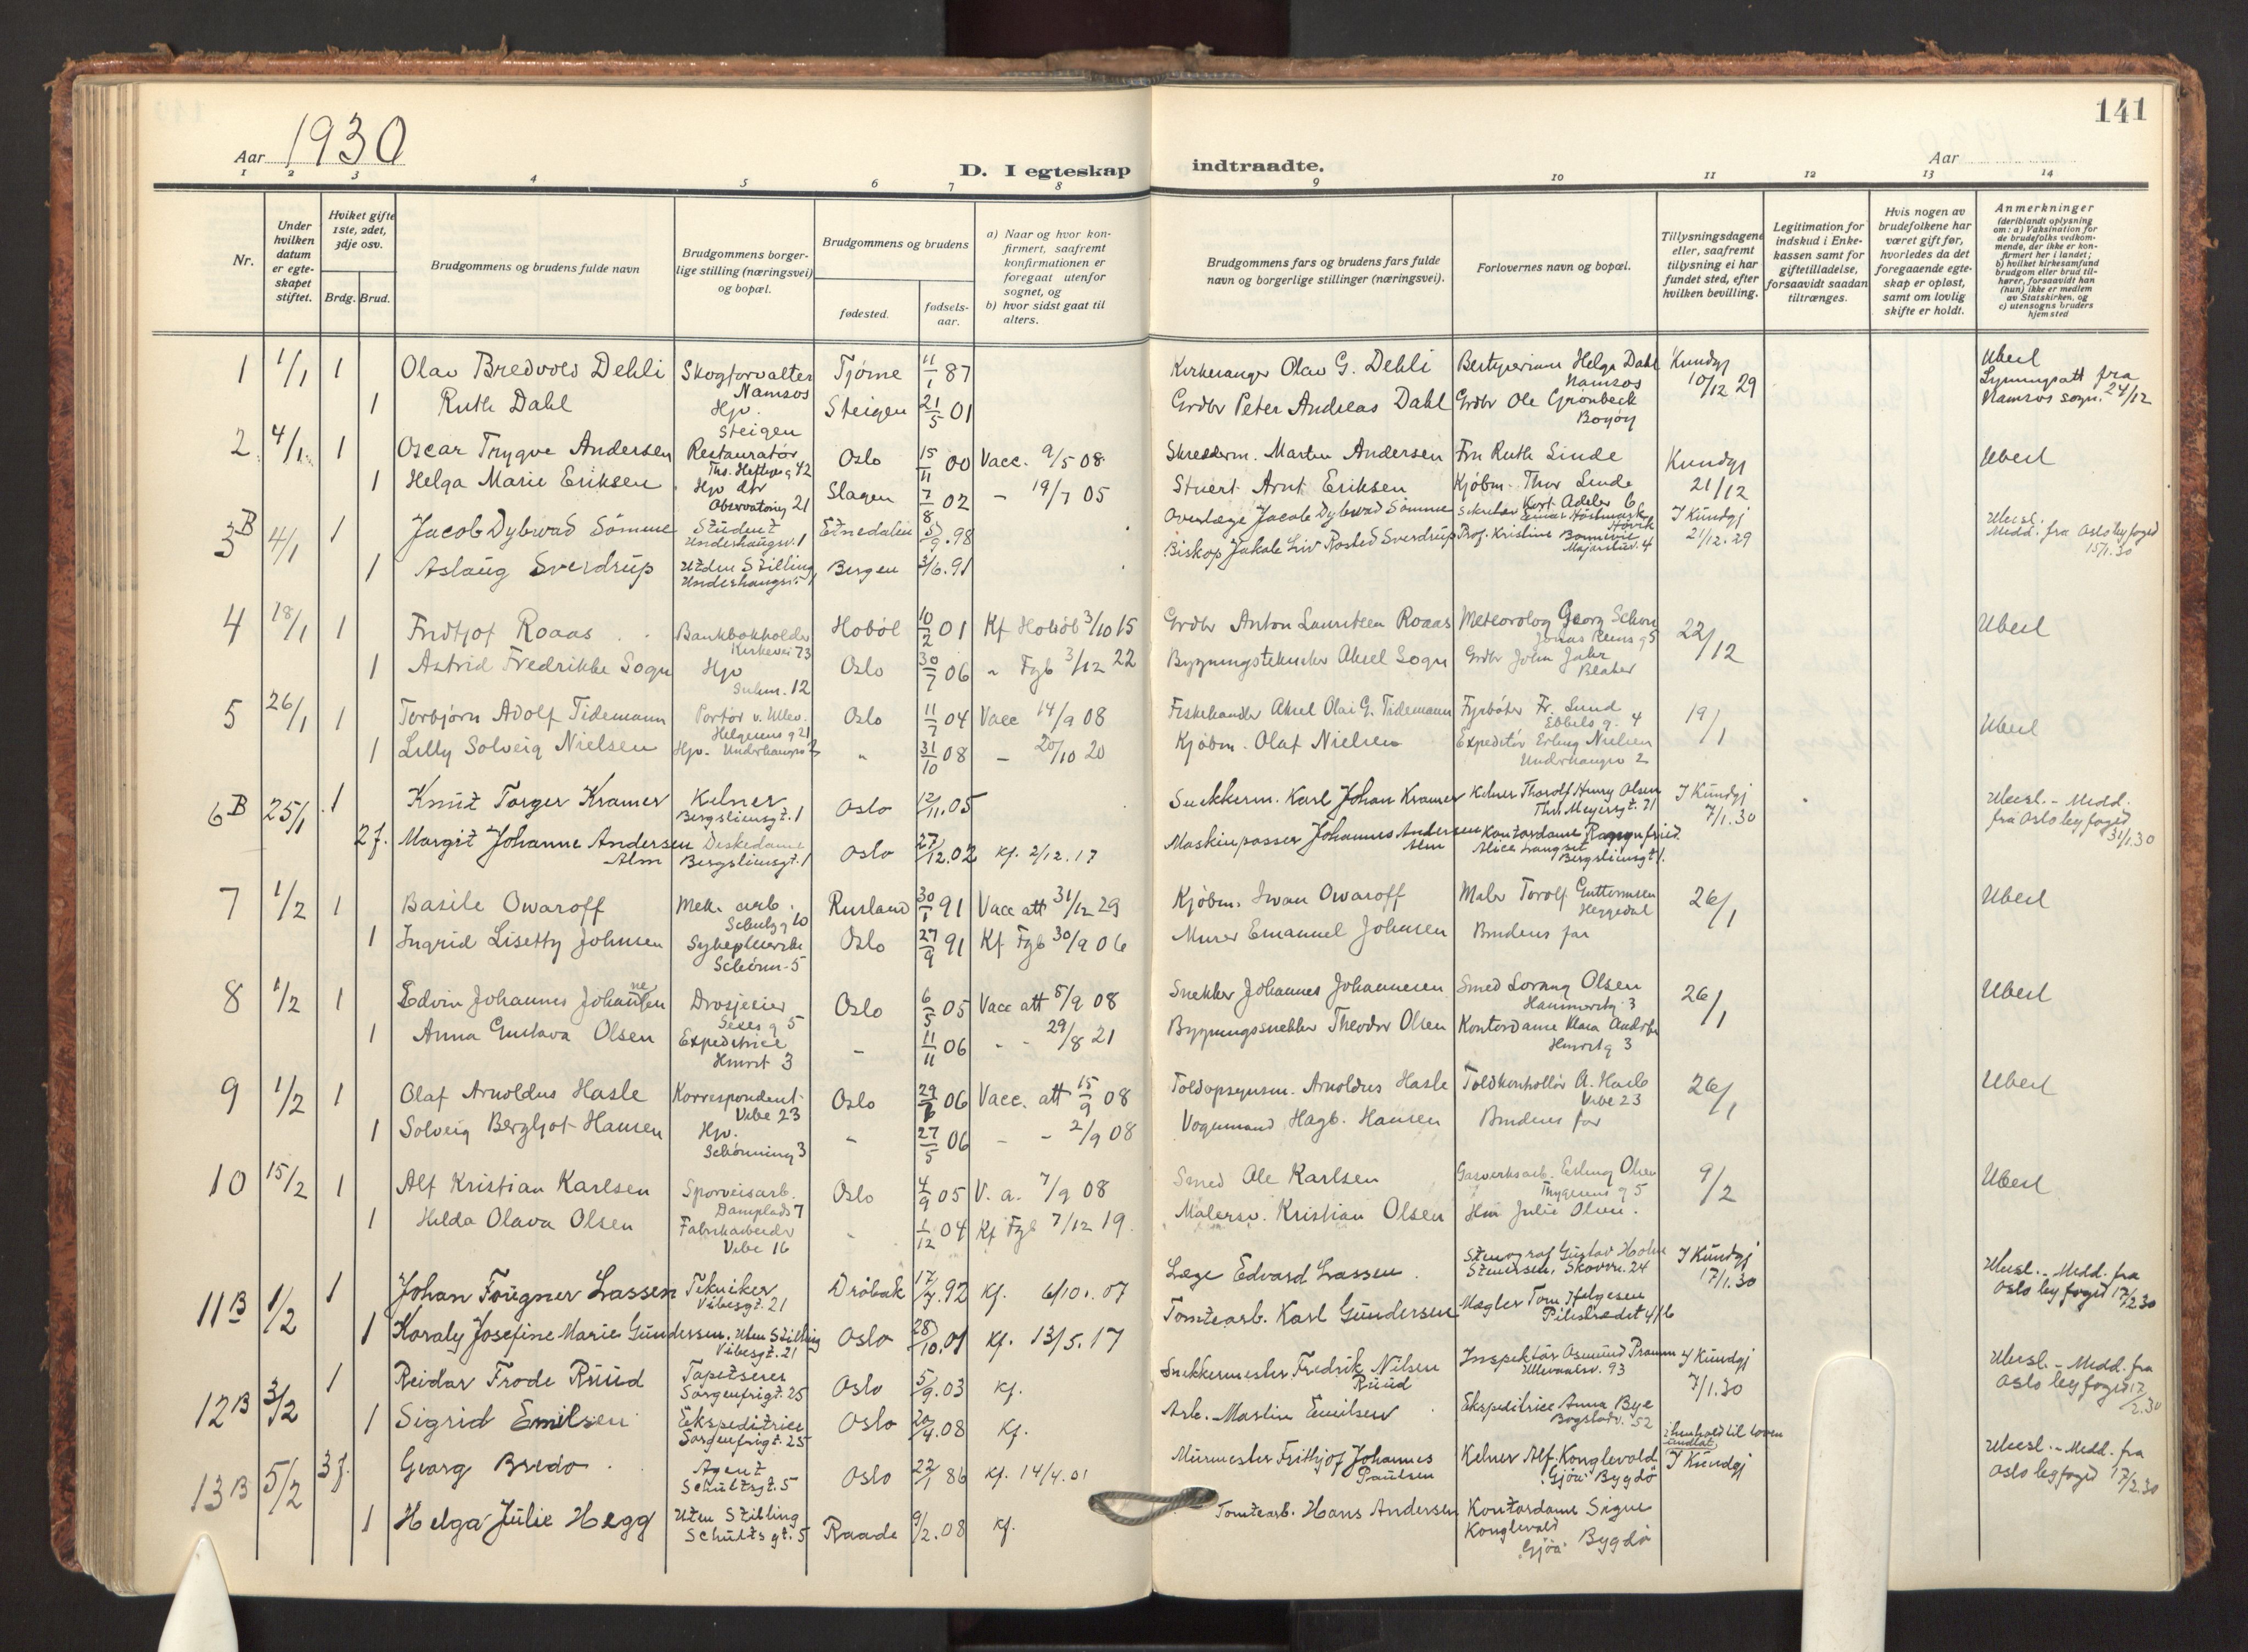 141
Aar 1930
D. I egteskap indtraadte.
Aar
1 2 3 4 5 6 7 8 9 10 11 12 13 14
Nr.
Under hvilken datum er egteskapet stiftet.
Hviket gifte 1ste, 2det, 3dje osv.
Brdg. Brud.
Brudgommens og brudens fulde navn
Brudgommens borgerlige stilling (næringsvei) og bopæl.
Brudgommens og brudens
fødested.
fødselsaar.
a) Naar og hvor konfirmert, saafremt konfirmationen er foregaat utenfor sognet, og
b) hvor sidst gaat til alters.
Brudgommens fars og brudens fars fulde navn og borgerlige stillinger (næringsvei).
Forlovernes navn og bopæl.
Tillysningsdagene eller, saafremt tillysning ei har fundet sted, efter hvilken bevilling.
Legitimation for indskud i Enkekassen samt for giftetilladelse, forsaavidt saadan tiltrænges.
Hvis nogen av brudefolkene har været gift før, hvorledes da det foregaaende egteskap er opløst, samt om lovlig skifte er holdt.
Anmerkninger (deriblandt oplysning om: a) Vaksination for de brudefolks vedkommende, der ikke er konfirmert her i landet; b) hvilket kirkesamfund brudgom eller brud tilhører, forsaavidt han (hun) ikke er medlem av Statskirken, og c) utensogns bruders hjemsted
1 1/1 1 Olav Bredvold Dehli Skogforvalter Namsos Tjøme 11/1 87 Kirkesanger Olav G. Dehli Bestyrerinne Helga Dahl Namsos Kundgj 10/12 29 Ubesl Lysningsatt fra Namsos sogn. 24/12
1 Ruth Dahl Hjv. Steigen Steigen 21/5 01 Grdbr Peter Andreas Dahl Grdbr Ole Grønbech Bogøy
2 4/1 1 Oscar Trygve Andersen Restauratør Ths. Heftyes g 42 Oslo 15/11 00 Vacc. 9/5 08 Skredderm. Marten Andersen Fru Ruth Linde Kundgj 21/12 Ubesl
1 Helga Marie Eriksen Hjv dtr Observatoring 21 Slagen 7/8 02 - 19/7 05 Stuert Arnt Eriksen Kjøbm. Thor Linde Kort Adeler 6
3B 4/1 1 Jacob Dybwad Sömme Student Underhaugsv. 1 Etnedalen 5/9.98 Overlæge Jacob Dybwad Sömme Sekretær Einar Höstmark Hövik I Kundgj 21/12.29 Ubesl. Medd. fra Oslo byfoged 15/1.30
1 Aslaug Sverdrup Uden Stilling Underhaugsv. 1 Bergen 3/6.91 Biskop Jakob Liv Rosted Sverdrup Prof. Kristine Bonnevie Majorstuv. 4
4 18/1 1 Fridtjof Roaas Bankbokholder Kirkevei 73 Hobøl 10/2 01 Kf Hobøl 3/10 15 Grdbr Anton Lauritzen Roaas Meteorolog Georg Schou Jonas Reins g 5 22/12 Ubesl
1 Astrid Fredrikke Sogn Hjv Suhm. 12 Oslo 30/7 06 - Fgb 3/12 22 Bygningstekniker Aksel Sogn Grdbr John Jahr Blaker
5 26/1 1 Torbjørn Adolf Tidemann Portør v. Ullev. Helgesens g 21 Oslo 11/7 04 Vacc 14/9 08 Fiskehandler Aksel Olai G. Tidemann Fyrbøter Fr. Lund Ebbels g. 4 19/1 Ubesl
1 Lilly Solveig Nielsen Hjv. Underhaugsv 2 - 31/10 08 - 20/10 20 Kjøbm. Olaf Nielsen Expeditør Erling Nielsen Underhaugsv 2
6B 25/1 1 Knut Torger Kramer Kelner Bergsliensgt. 1 Oslo 12/11.05 Snekkerm. Karl Johan Kramer Kelner Thorolf Henry Olsen Thv. Meyersgt. 71 I Kundgj 7/1.30 Ubesl. - Medd. fra Oslo byfoged 31/1.30
2f. Margit Johanne Andersen Alm Diskedame Bergsliensgt. 1 Oslo 27/12.02 Kf. 2/12.17 Maskinpasser Johannes Andersen Alm Kontordame Ragnfrid Alice Langset Bergsliensgt 1.
7 1/2 1 Basile Owaroff Mek. arb. Schultz g 10 Rusland 30/1 91 Vacc att 31/12 29 Kjøbm. Iwan Owaroff Maler Torolf Guttormsen Heggedal 26/1 Ubesl
1 Ingrid Lisetty Johnsen Sykepleierske Schønn. 5 Oslo 27/9 91 Kf Fgb 30/9 06 Murer Emanuel Johnsen Brudens far
8 1/2 1 Edvin Johannes Johannesen Drosjeeier Sexes g 5 Oslo 6/5 05 Vacc att 5/9 08 Snekker Johannes Johannesen Smed Lorang Olsen Hammerstg. 3 26/1 Ubesl
1 Anna Gustava Olsen Expeditrice Hmrst 3 - 11/11 06 - - 29/8 21 Bygningssnekker Theodor Olsen Kontordame Klara Hmrstg 3
9 1/2 1 Olaf Arnoldus Hasle Korrespondent Vibe 23 Oslo 29/6 06 Vacc. att 15/9 08 Toldopsynsm. Arnoldus Hasle Toldkontrollør A. Hasle Vibe 23 26/1 Ubesl
1 Solveig Bergljot Hansen Hjv. Schønning 3 - 27/5 06 - - 2/9 08 Vognmand Hagb. Hansen Brudens far
10 15/2 1 Alf Kristian Karlsen Sporveisarb. Damplads 7 Oslo 4/9 05 V. a. 7/9 08 Smed Ole Karlsen Gasverksarb. Erling Olsen Thygesens g 5 9/2 Ubesl
1 Hilda Olava Olsen Fabrikarbeider Vibe 16 - 1/12 04 Kf Fgb 7/12 19. Malersv. Kristian Olsen Hm Julie Olsen.
11B 1/2 1 Johan Fougner Lassen Tekniker Vibesgt. 21 Dröbak 17/7.92 Kf. 6/10. 07 Læge Edvard Lassen Stenograf Gustav Holm Stenersen, Skovvn. 24 I Kundgj 17/1.30 Ubesl. - Medd. fra Oslo byfoged 17/2 30
1 Koraly Josefine Marie Gundersen. Uten Stilling Vibesgt. 21 Oslo 28/10.01 Kf. 13/5.17 Tomtearb. Karl Gundersen Megler Tom Helgesen Pilestrædet 4/6
12B 3/2 1 Reidar Frode Ruud Tapetserer Sorgenfrigt. 25 Oslo 5/9.03 Kf. Snekkermester Fredrik Nilsen Ruud Inspektör Osmund Ullevaalsv. 93 I Kundgj 7/1.30 Ubesl. - Medd. fra Oslo byfoged 17/2.30
1 Sigrid Emilsen Ekspeditrice Sorgenfrigt. 25 Oslo 20/4.08 Kf. Arb. Martin Emilsen Ekspeditrice Anna Bye Bogstadv. 52
13B 5/2 3f. Georg Bredo Agent Schultsgt. 5 Oslo 22/1 86 Kf. 14/4.01 Murmester Frithjof Johannes Paulsen Kelner Alf Konglevold "Gjöa" Bygdö i henhold til loven I Kundgj Ubesl. - Medd. fra Oslo byfoged 17/2.30
1 Helga Julie Hegg Uten Stilling Schults gt. 5 Raade 9/2.08 Kf. Tomtearb. Hans Andersen Kontordame Signe Konglevold "Gjöa" Bygdö